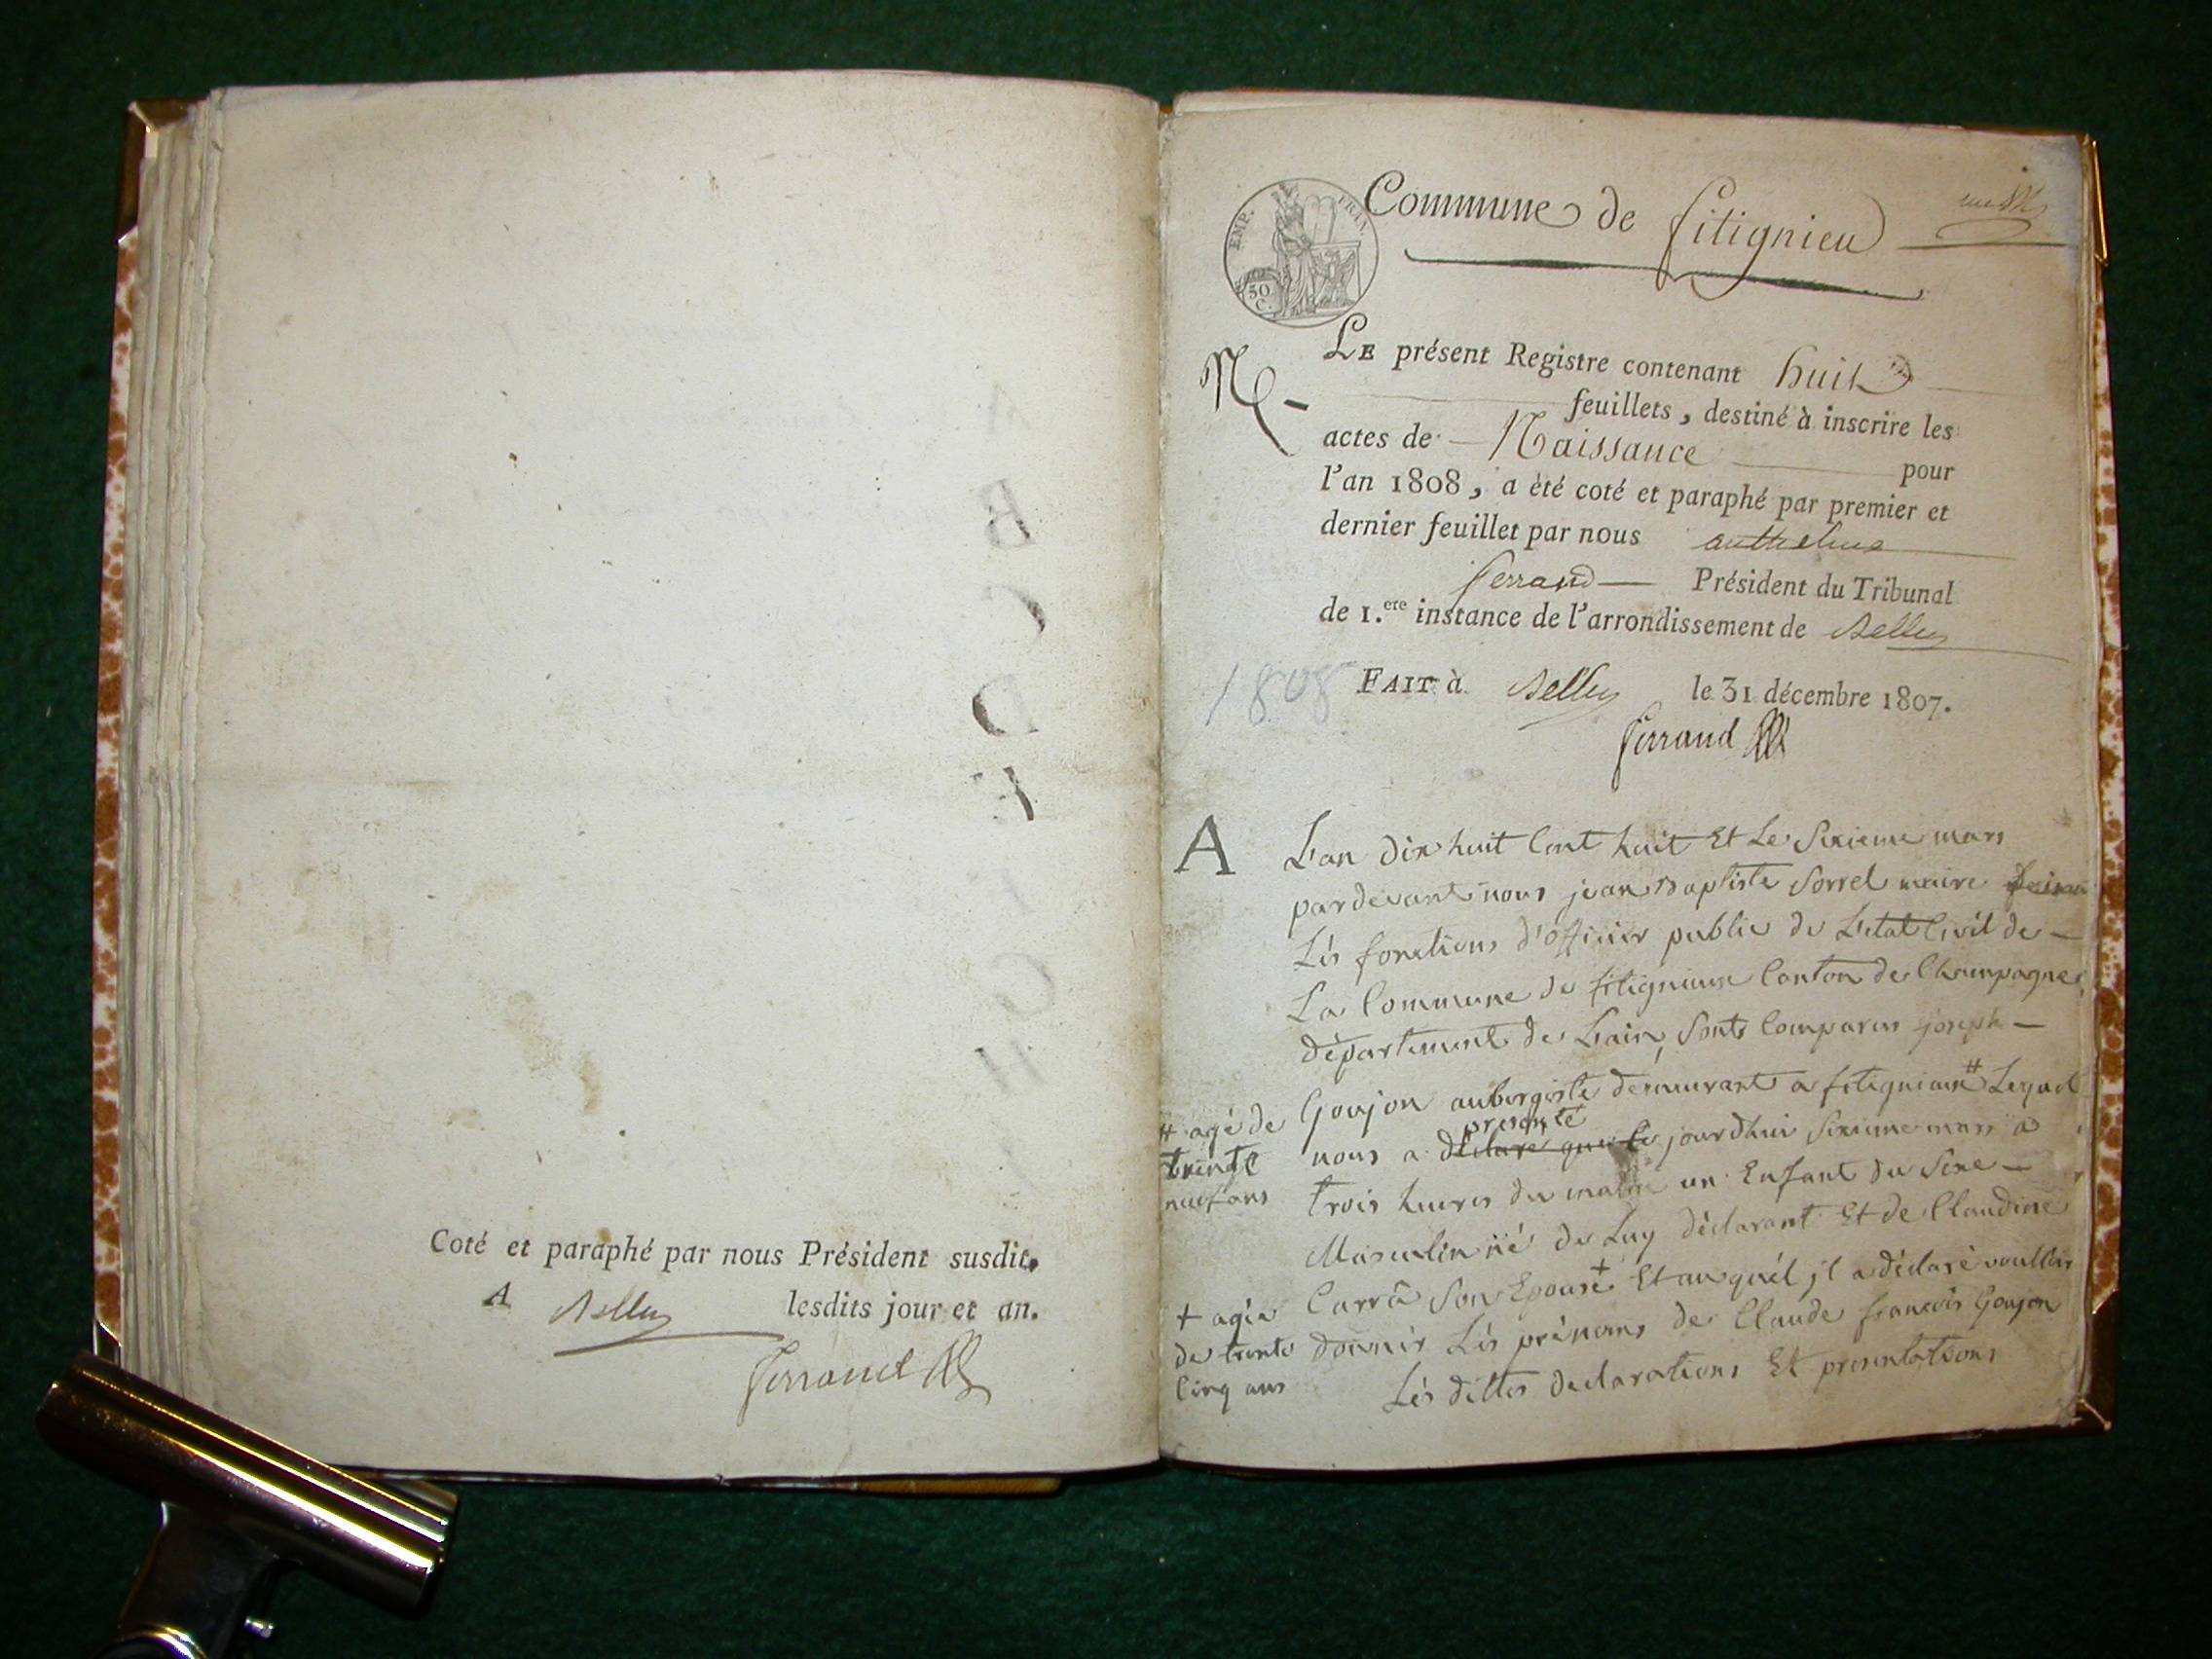 Coté et paraphé par nous Président susdit,
A Belley lesdits jour et an.
Ferrand
EMP. FRAN.
50 C.
Commune de fitignieu
N
LE présent Registre contenant huit
feuillets, destiné à inscrire les
actes de Naissance pour
l'an 1808, a été coté et paraphé par premier et
dernier feuillet par nous anthelme
ferrand Président du Tribunal
de 1.ere instance de l'arrondissement de Belley
1808
FAIT à Belley le 31 décembre 1807.
Ferrand
A
L'an dix huit Cent huit Et Le Sixieme mars
pardevant nous jean Baptiste Sorrel maire
Lés fonctions d'Officier public de L'etat Civil de
La Commune de fitignieux Canton de Champagne
département de L'ain, Sont Comparus joseph
Goujon aubergiste demeurant a fitignieux # Lequel
# agé de
trente
neuf ans
presenté
nous a déclaré que le jourdhui Sixieme mars a
trois heures du matin un Enfant du Sexe
Masculin né de Luy déclarant Et de Claudine
Carrâ Son Epouse + Et auquél jl a déclaré voulloir
+ agée
de trente
Cinq ans
donnér Lés prénoms de Claude francois Goujon
Lés dittes declarations Et presentations